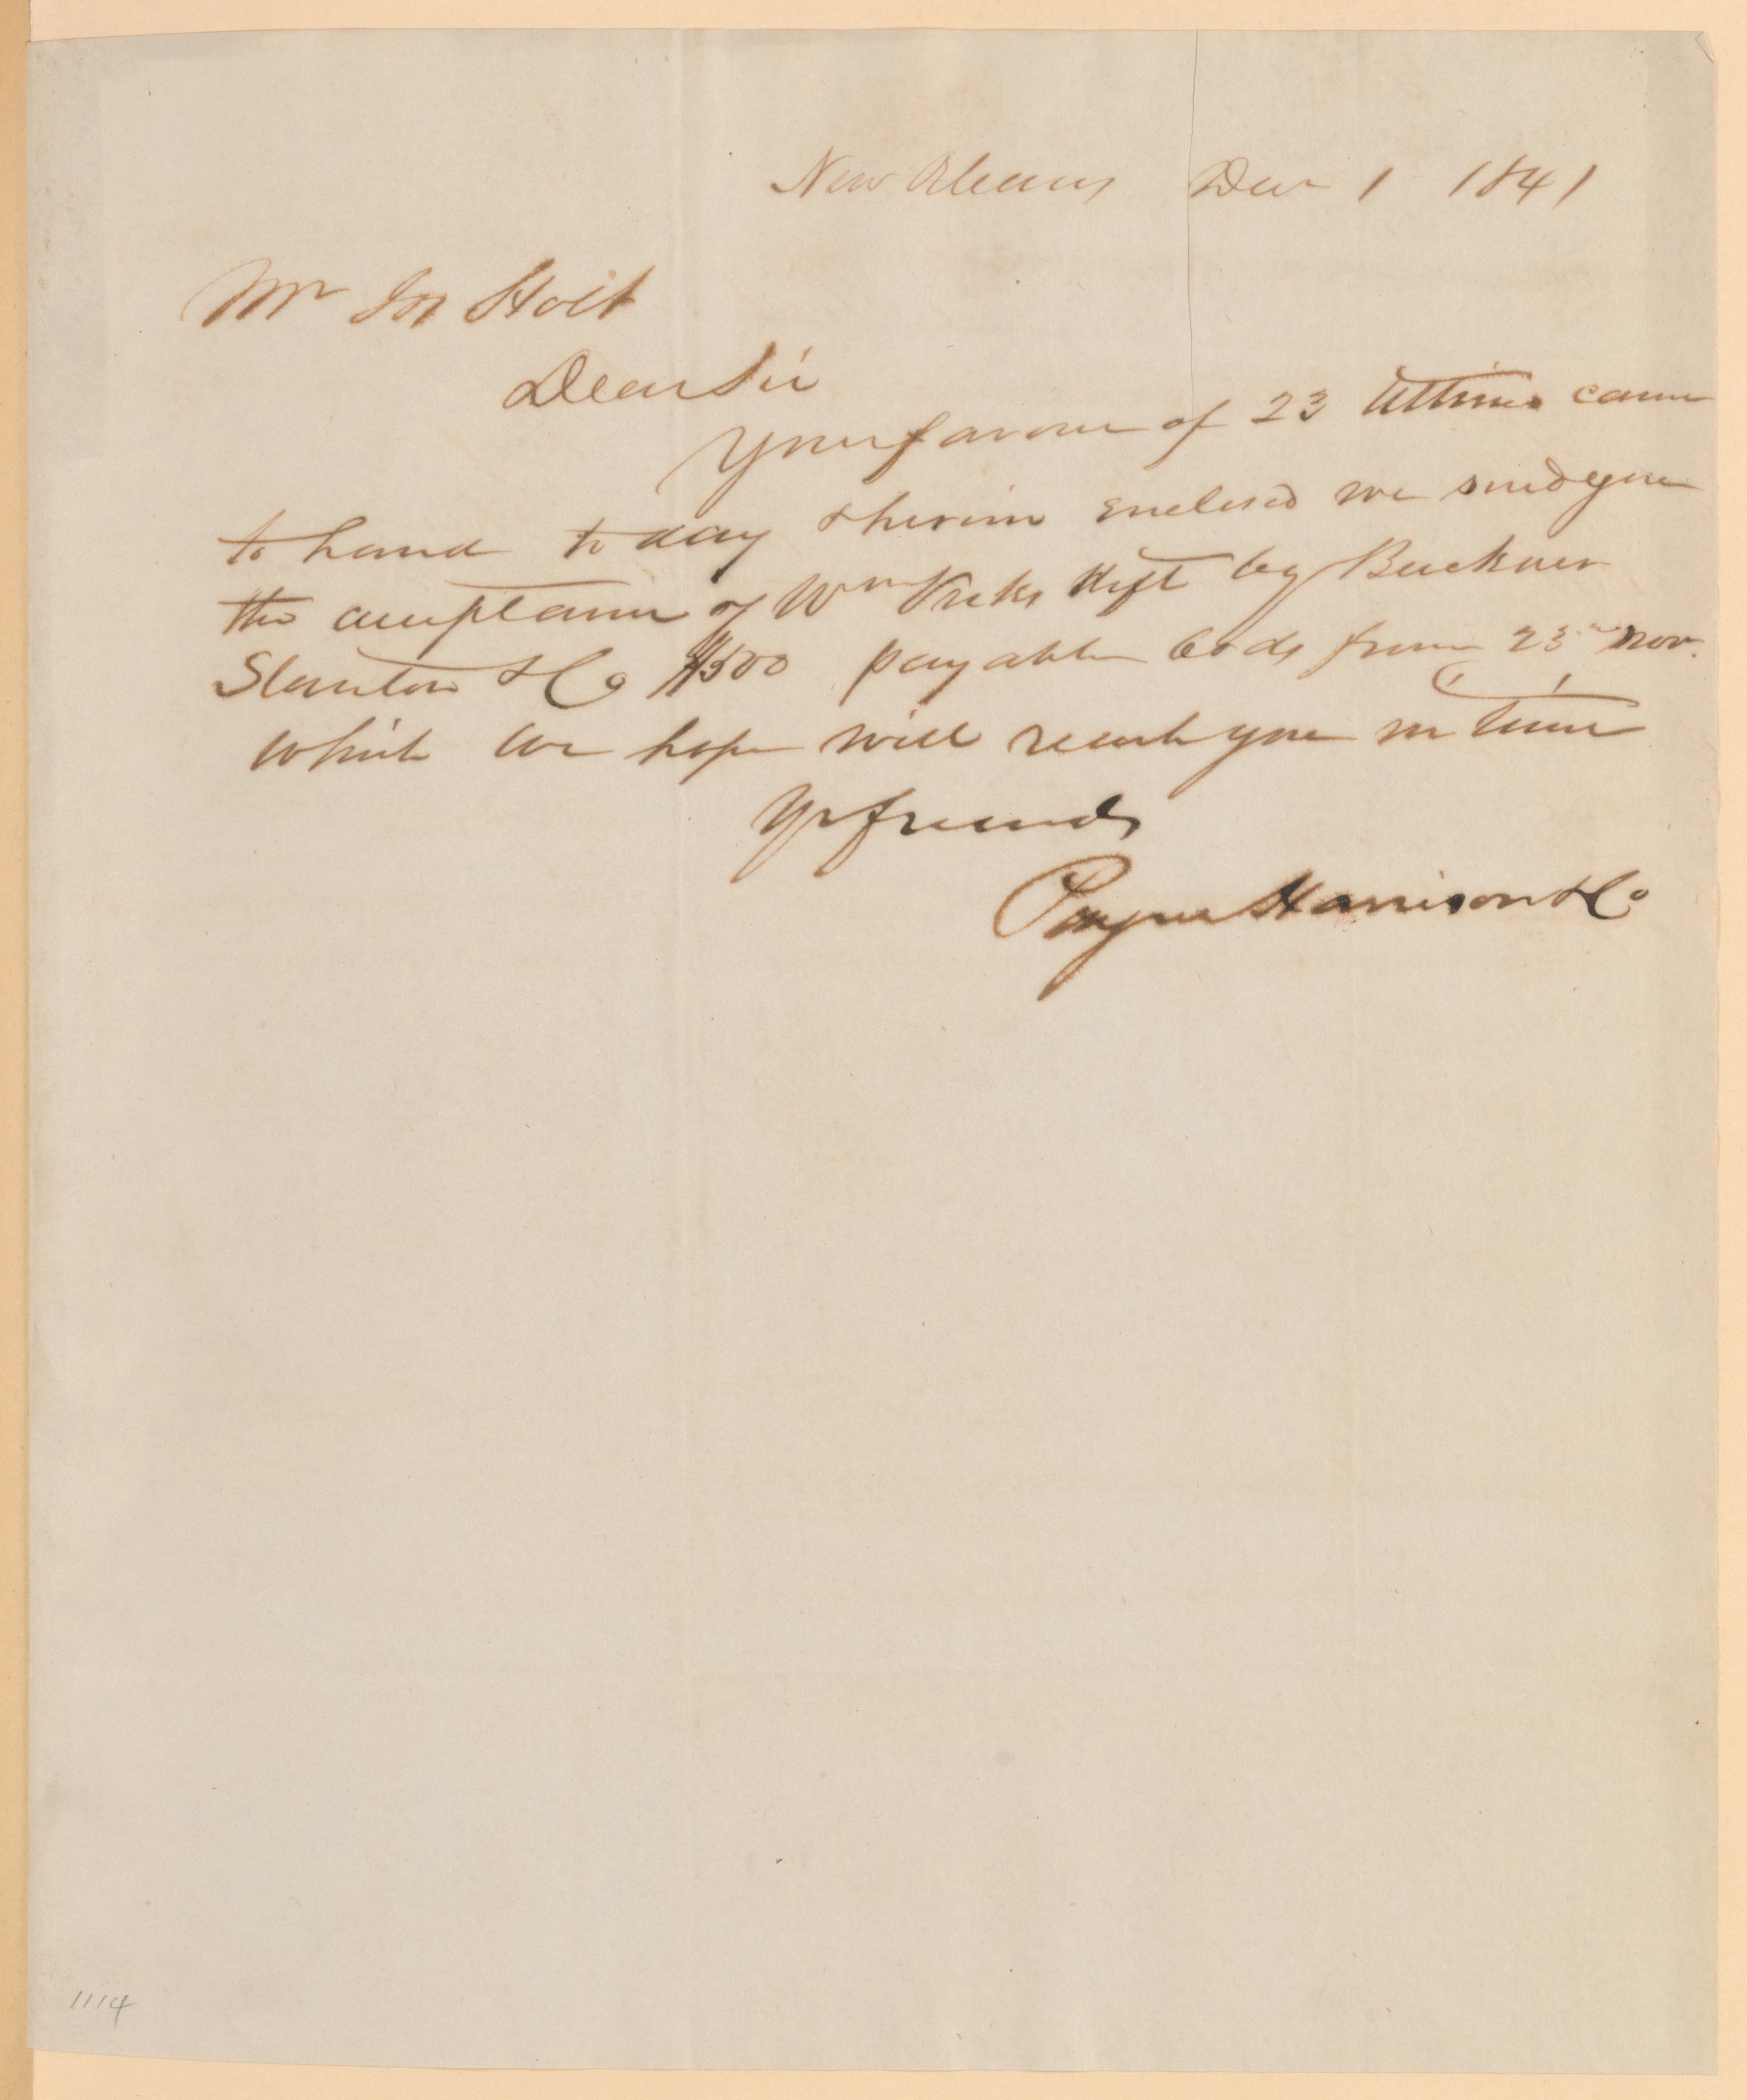 New Orleans Decr 1 1841
Mr Jos Holt
Dear Sir
Your favour of 23 Ultimo came
to hand to day & herein enclosed we send you
the acceptance of Wm Dft by Buckner
Stanton & Co $500 payable 60 ds from 23 Nov.
which we hope will reach you in time
Yr friends
Payne Harrison & Co
1114